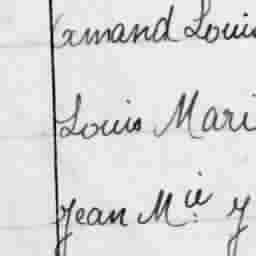 Armand Louis
Louis Mari
Jean M.ie y